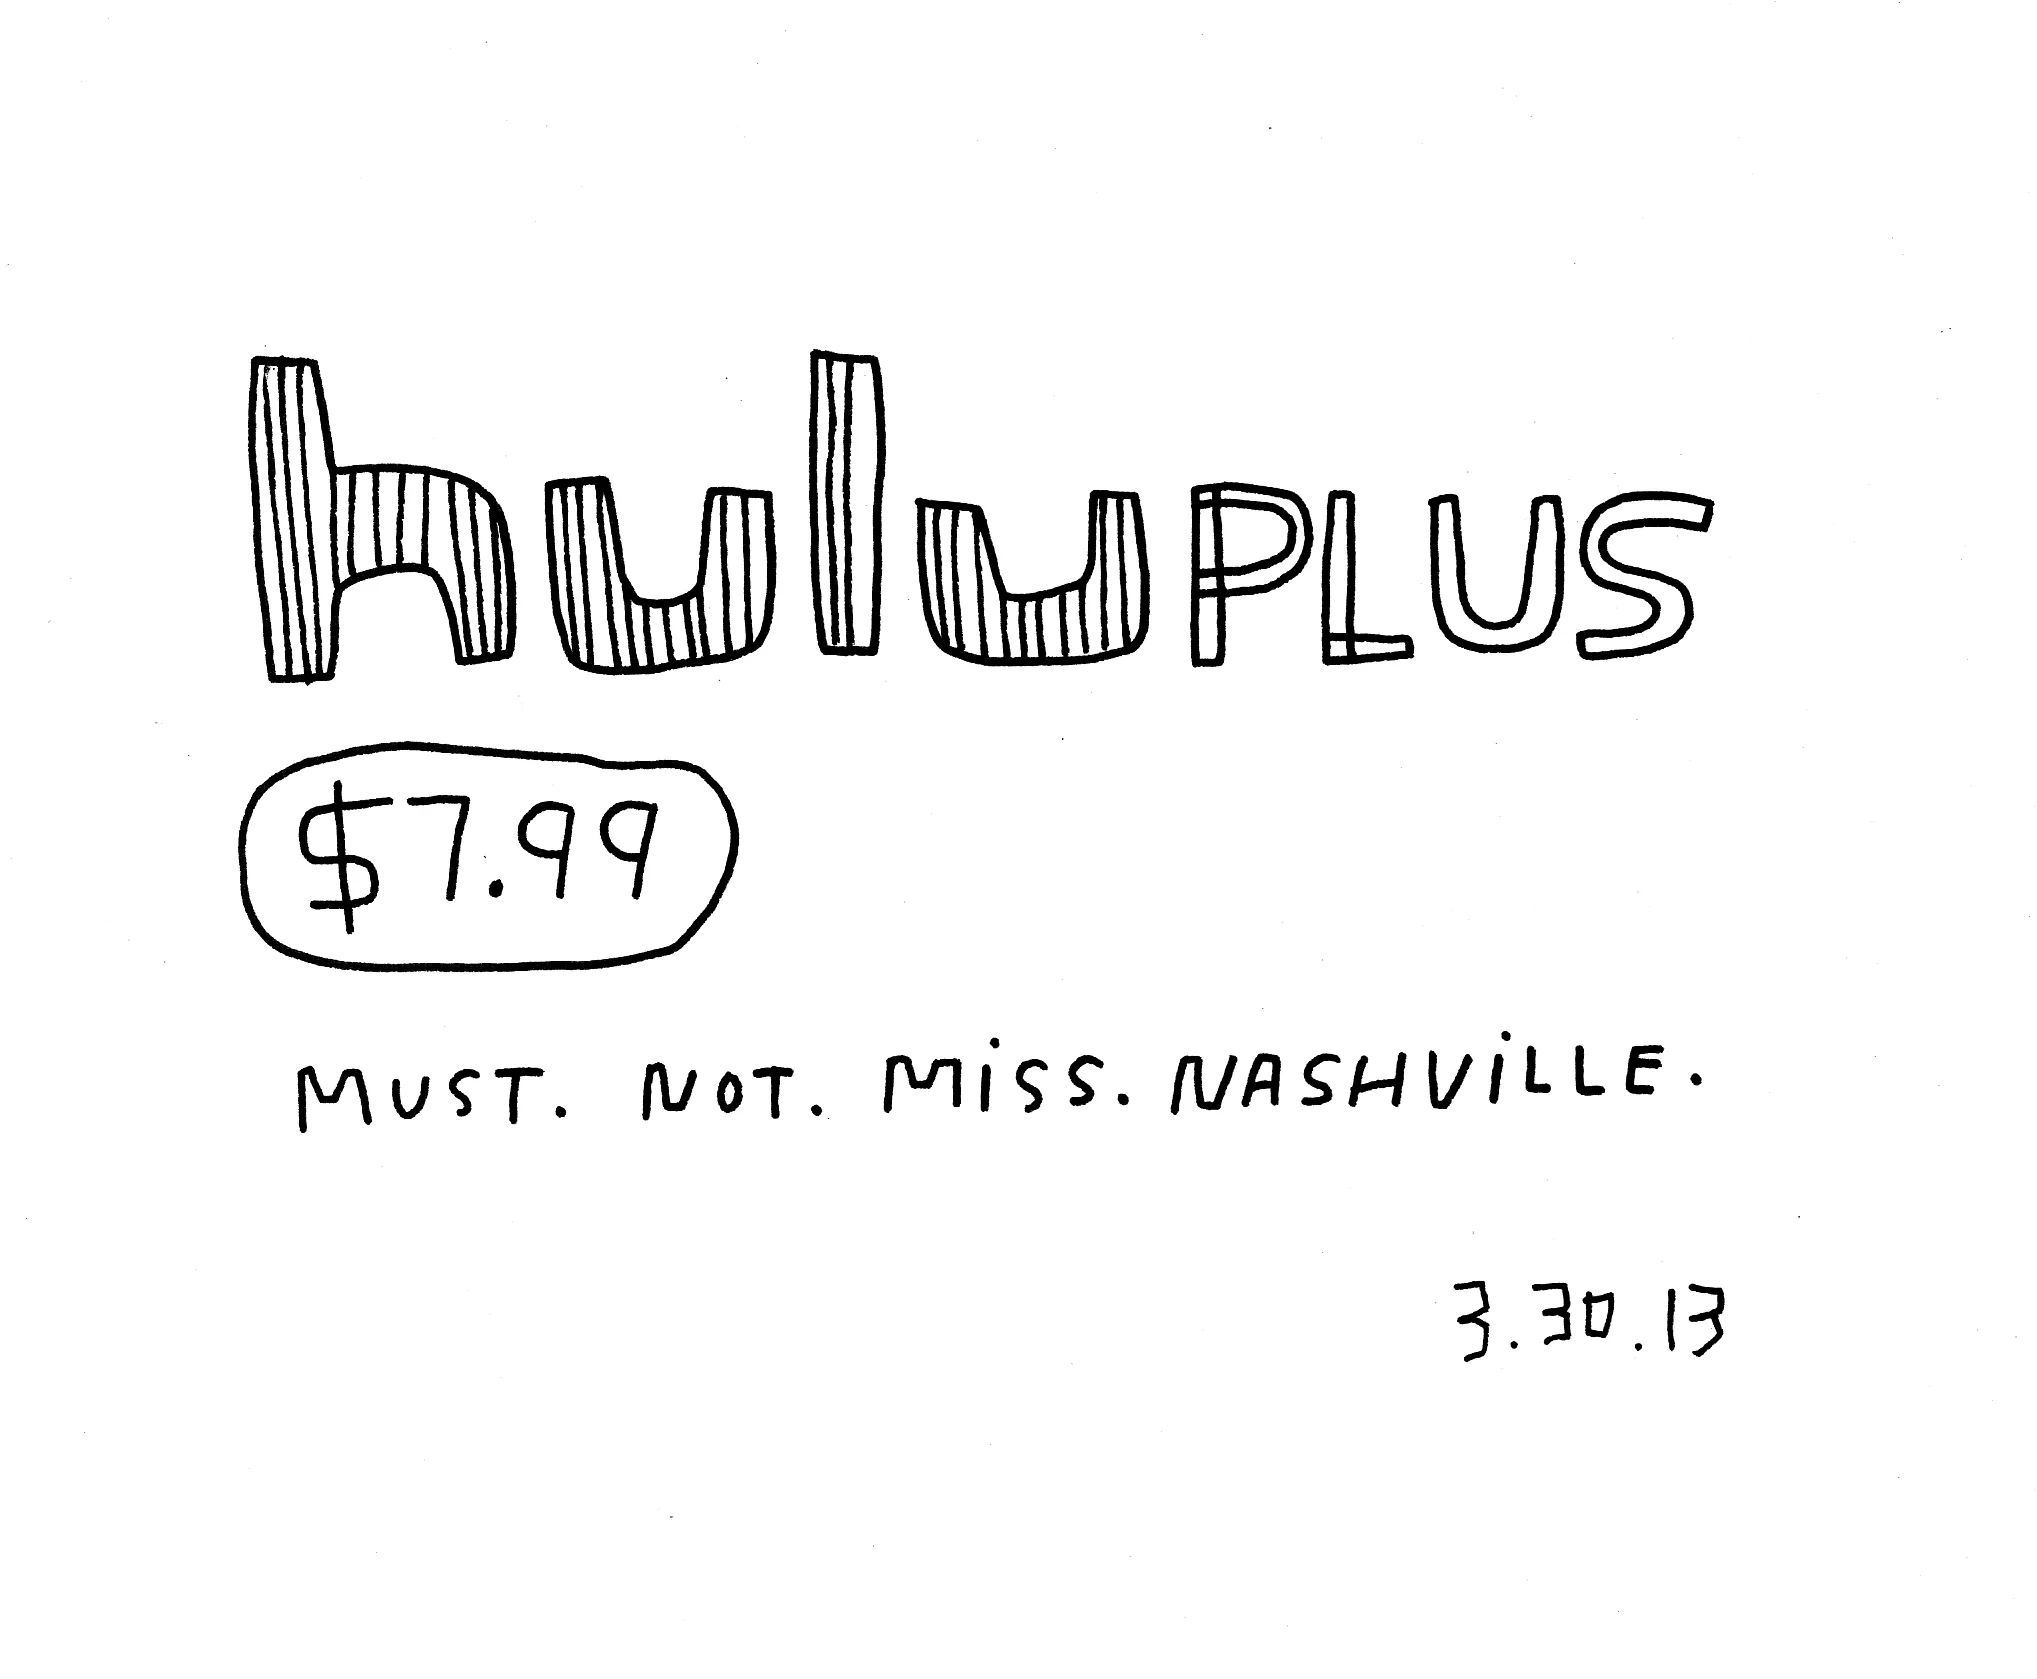 hulu PLUS
$7.99
MUST. NOT. MiSS. NASHViLLE.
3.30.13